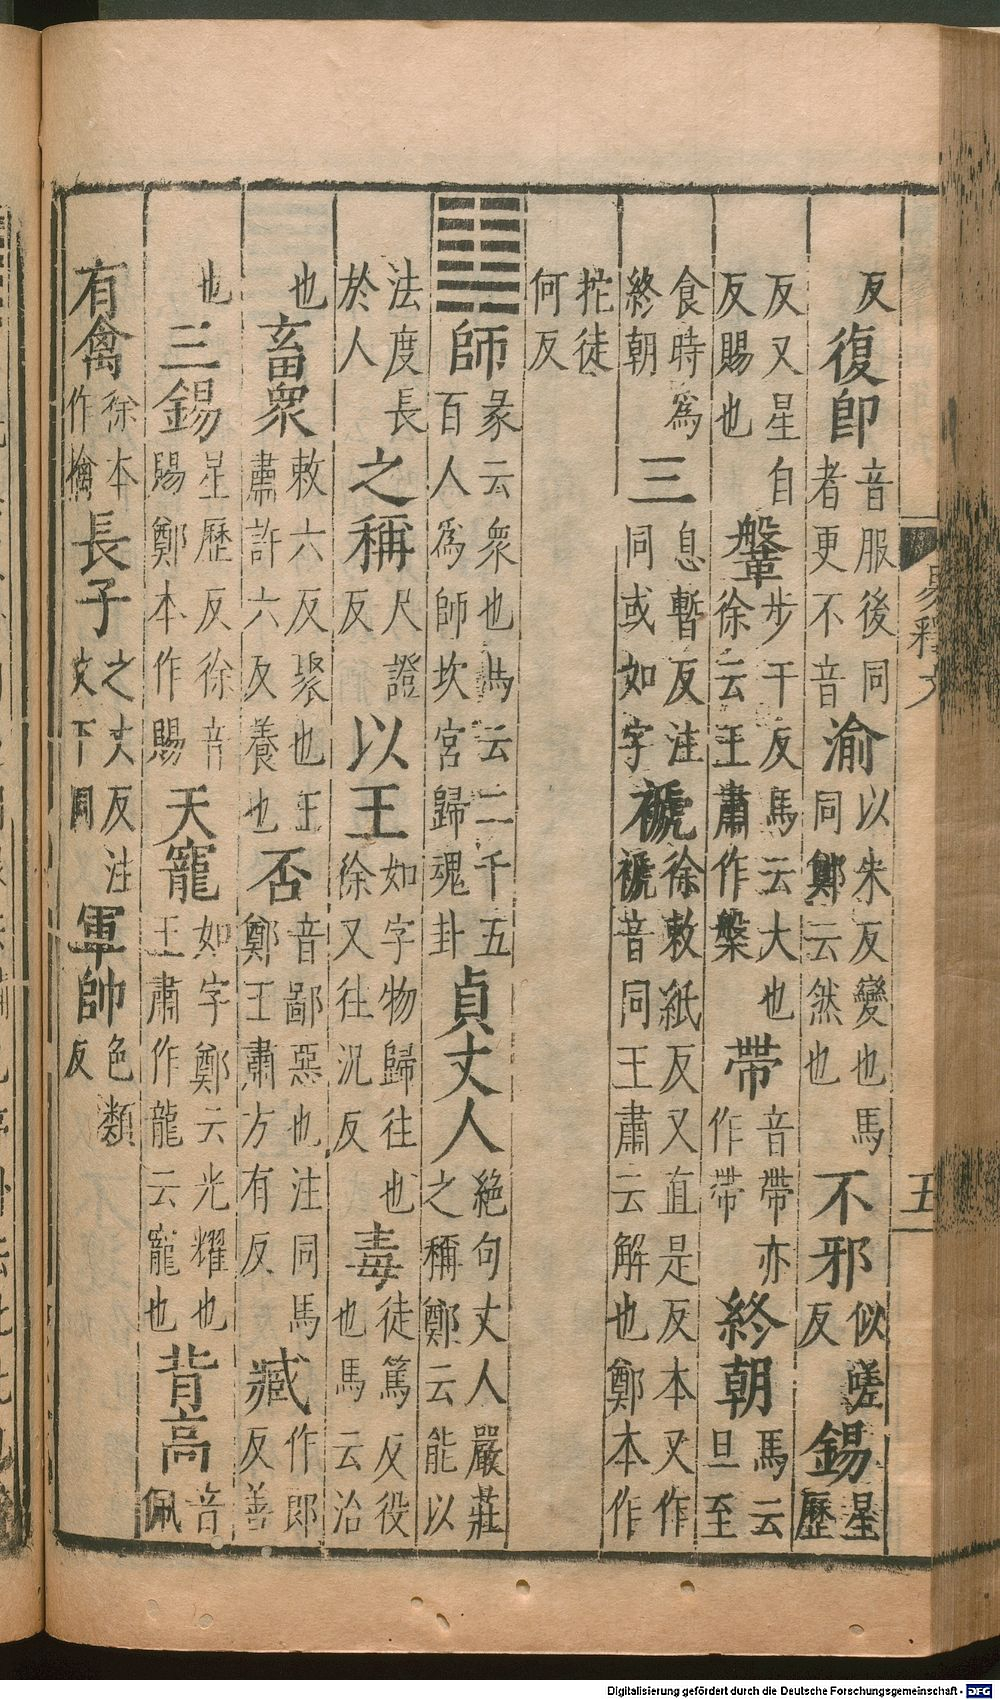 反復卽音服後同者更不音渝以朱反變也馬同鄭云然也不邪似嗟反錫星歷
反又星自反賜也鞶步干反馬云大也徐云王肅作槃帶音帶亦作帶終朝馬云旦至
食時爲終朝三息暫反注同或如字褫徐敕紙反又直是反本又作褫音同王肅云解也鄭本作
拕徒何反
䷆師彖云衆也馬云二千五百人爲師坎宮歸魂卦貞丈人絶句丈人嚴莊之稱鄭云能以
法度長於人之稱尺證反以王如字物歸往也徐又往況反毒徒篤反役也馬云治
也畜衆敕六反聚也王肅許六反養也否音鄙惡也注同馬鄭王肅方有反臧作郎反善
也三錫星歷反徐音賜鄭本作賜天寵如字鄭云光耀也王肅作龍云寵也背高音佩
有禽徐本作擒長子之丈反注文下同軍帥色類反
易釋文
五
Digitalisierung gefördert durch die Deutsche Forschungsgemeinschaft - DFG